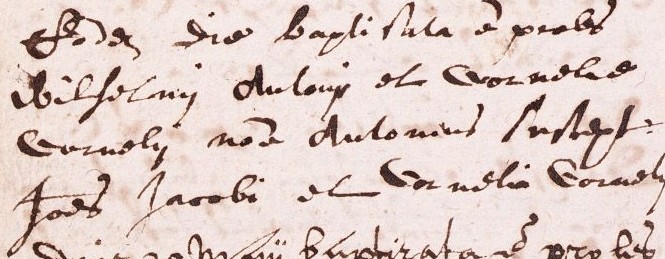 Eodem die baptisata ē proles
Wilhelmij Antonij et Cornelie
Cornelij noē Antonius suscept
Joēs Jacobi et Cornelia Cornely
Maij baptizata ē proles